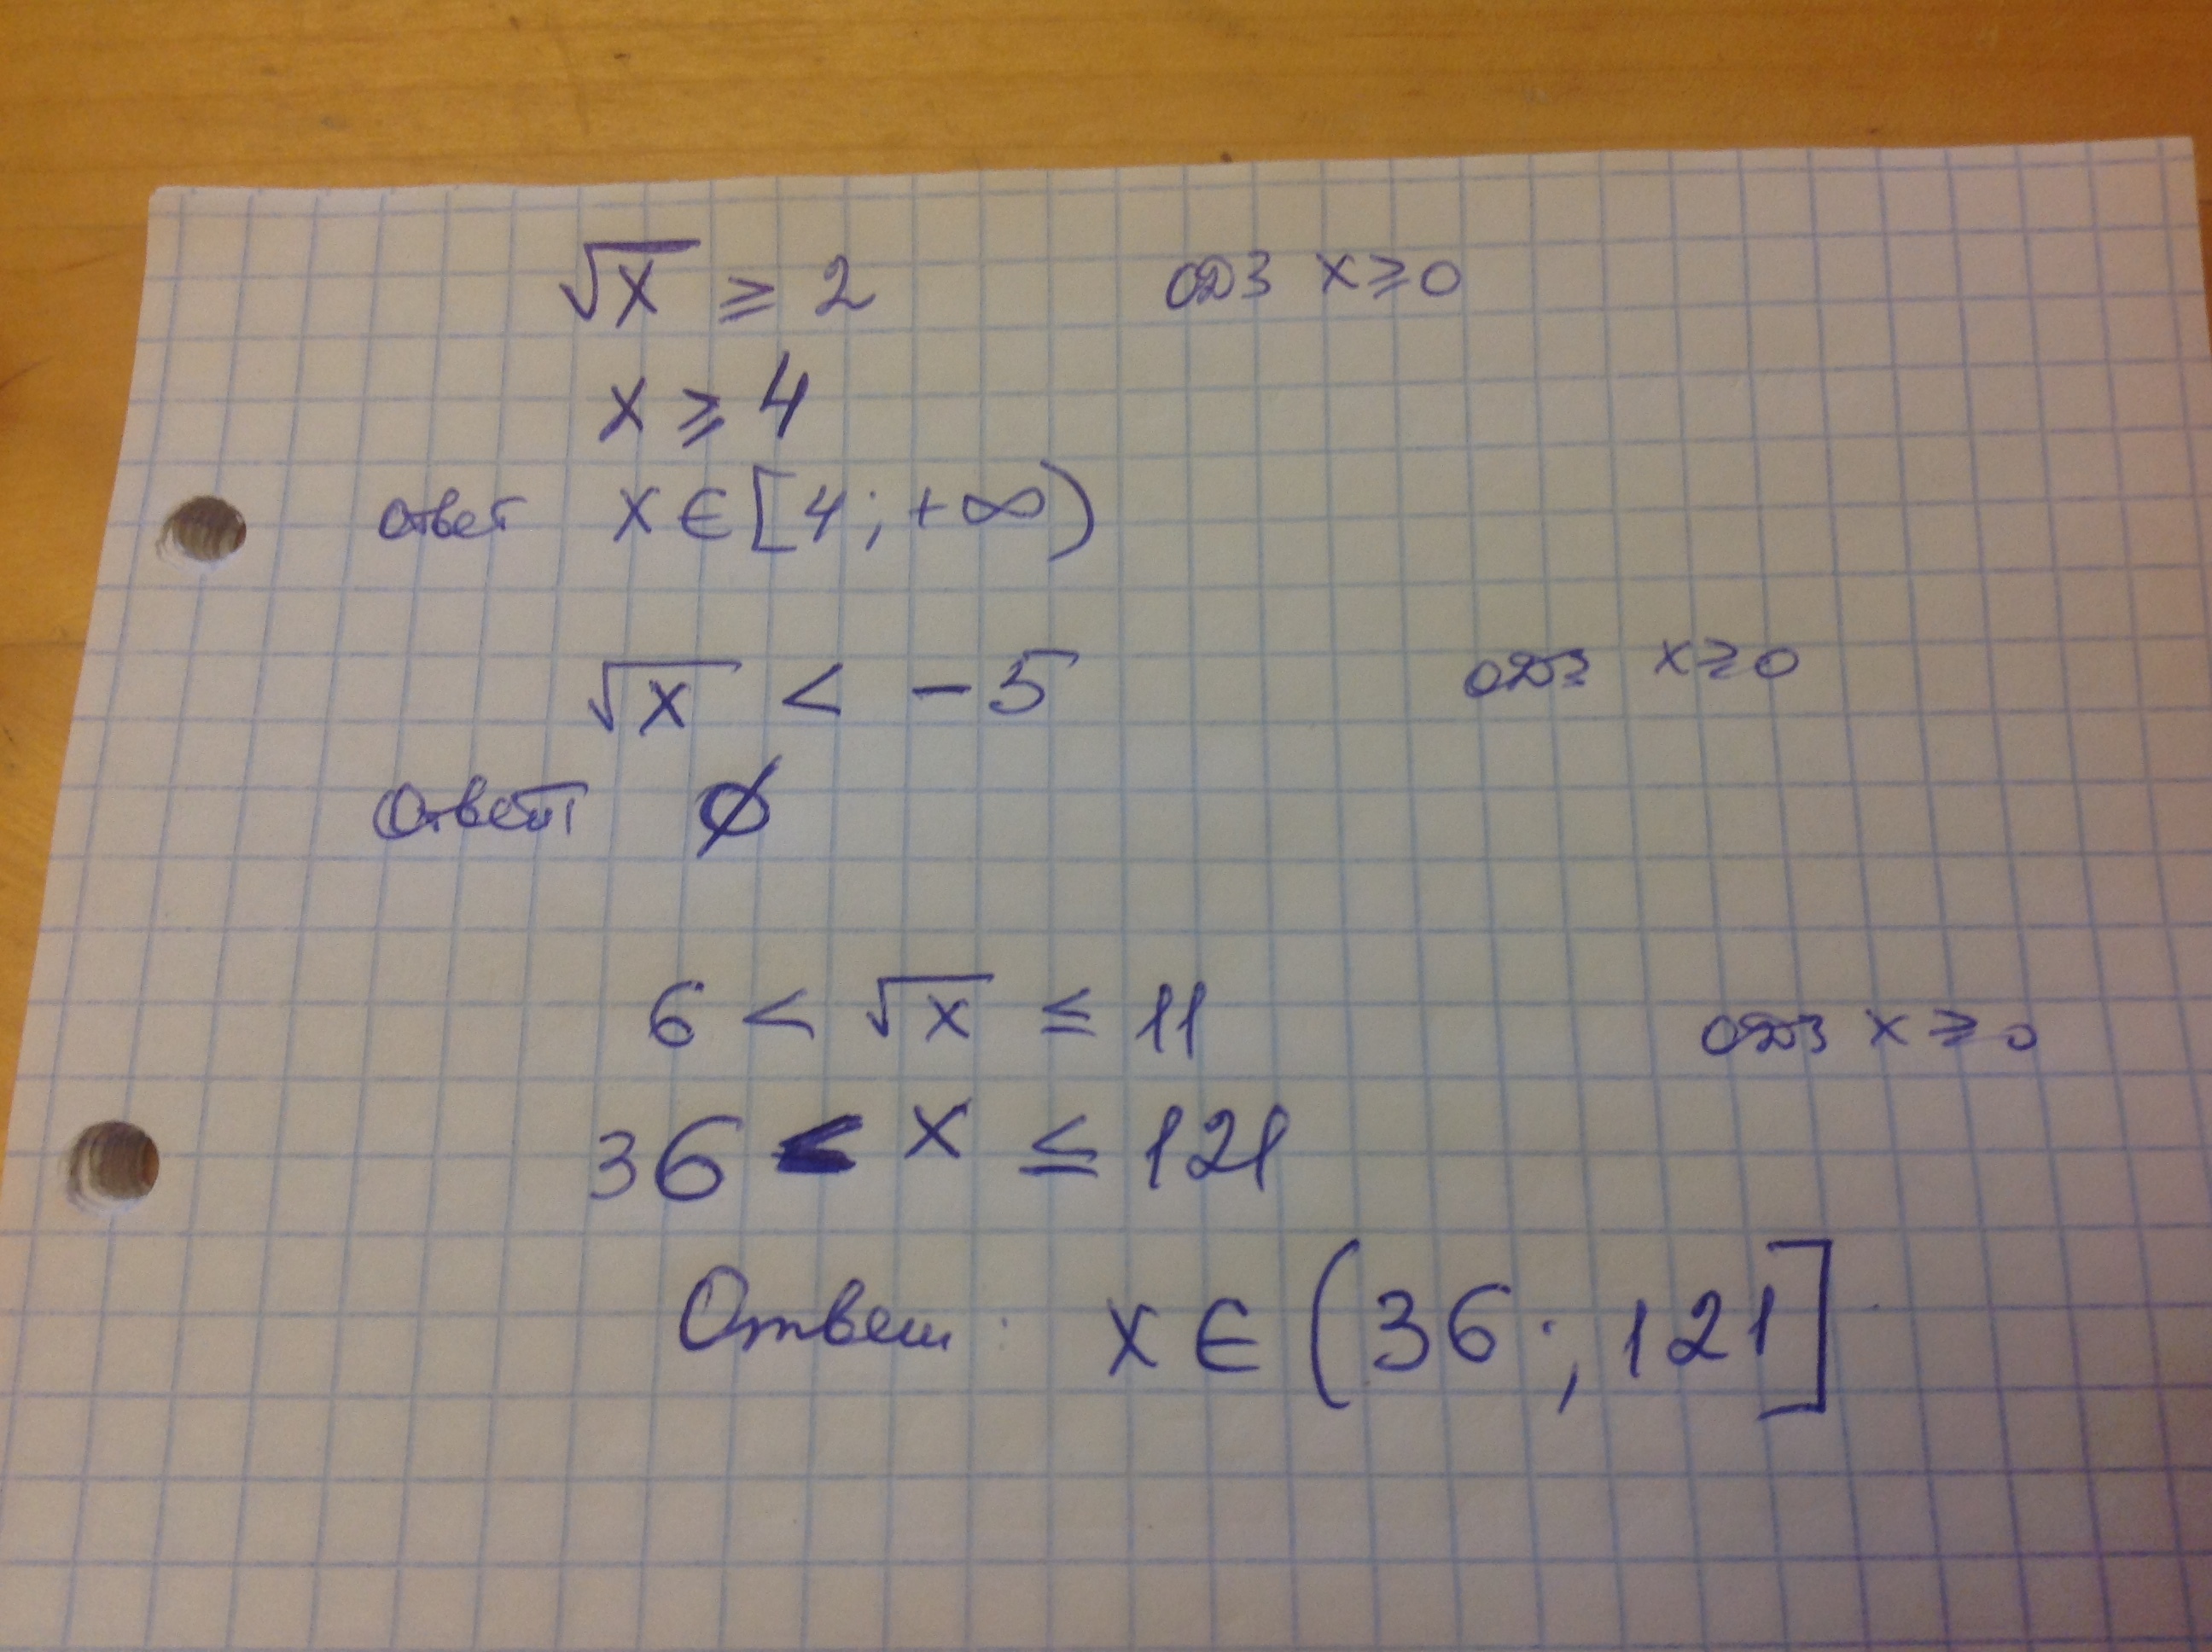 √x ≥ 2 ОДЗ x ≥ 0
x ≥ 4
ответ x ∈ [4; +∞)
√x < -5 ОДЗ x ≥ 0
Ответ ∅
6 < √x ≤ 11 ОДЗ x ≥ 0
36 < x ≤ 121
Ответ: x ∈ (36; 121]